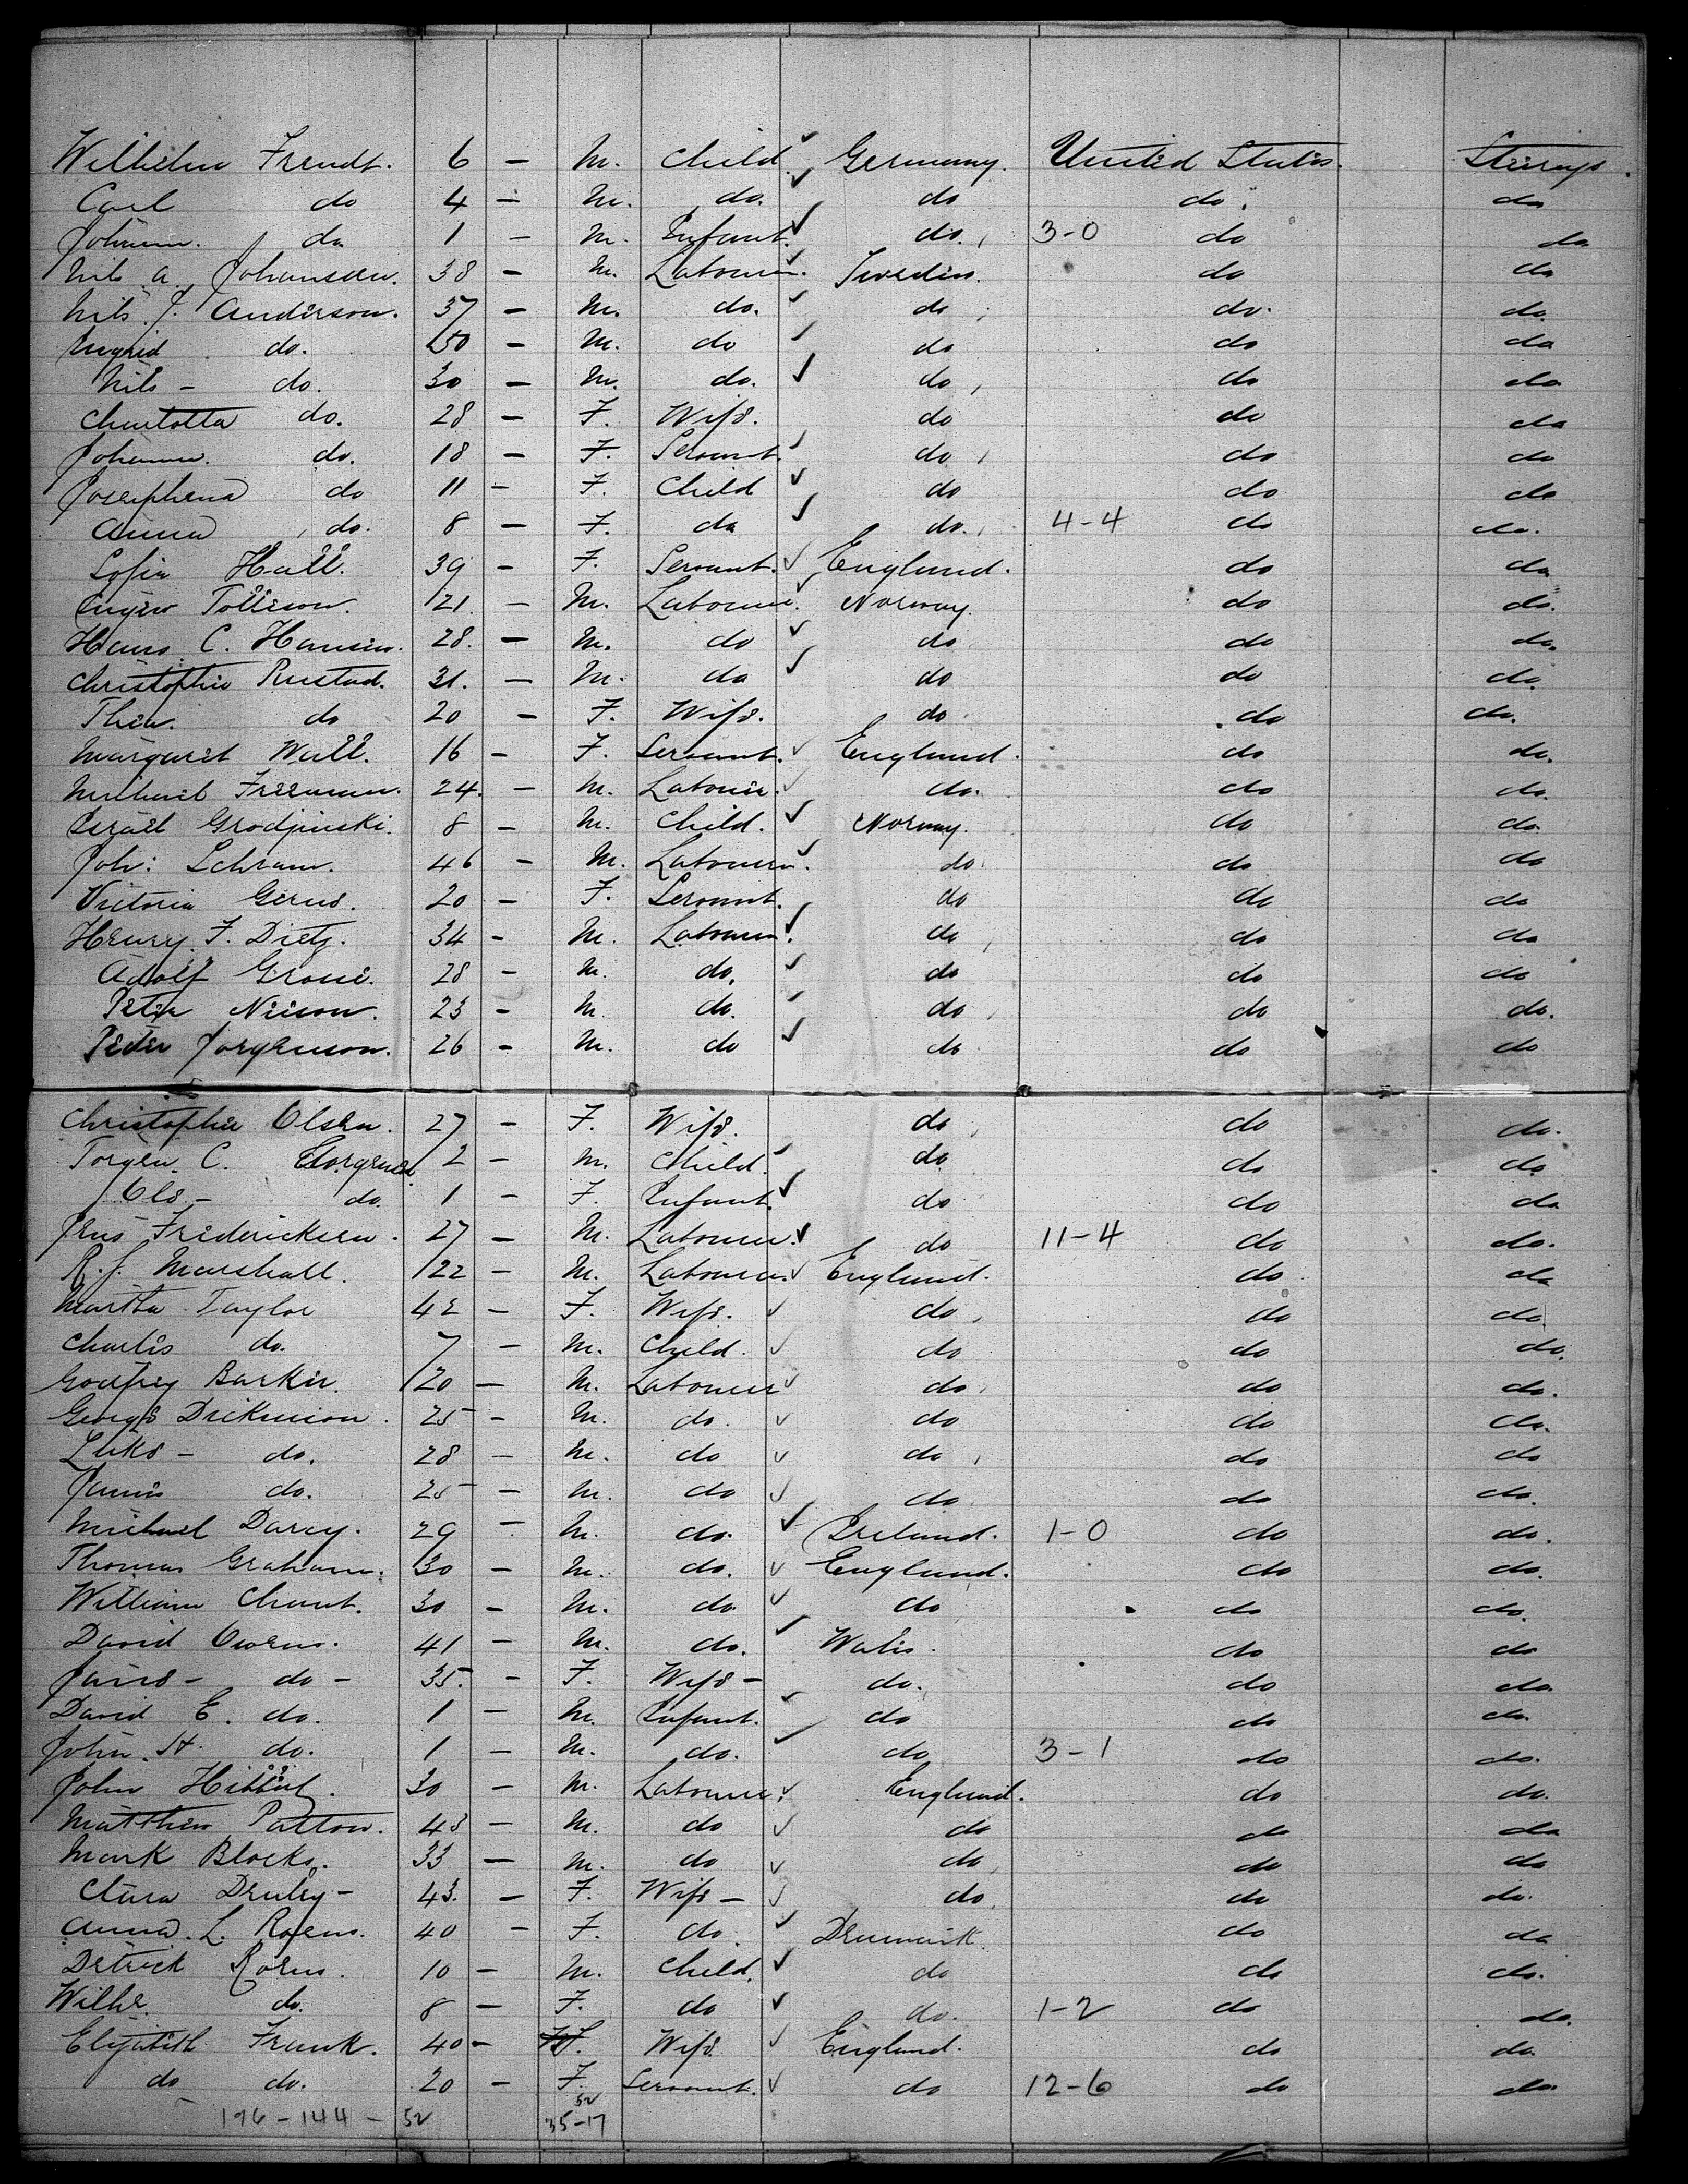 Wilhelm Frendt. 6 – M. Child Germany. United States. Steerage.
Carl do 4 – M. do. do do do
Johann. do 1 – M. Infant. do. 3-0 do do
Nils A. Johansen. 38 – M. Labourer. Sweden. do do
Nils J. Anderson. 37 – M. do. do do. do.
Ingrid do. 50 – M. do do do do
Nils – do. 30 – M. do. do do do
Charlotta do. 28 – F. Wife. do do do
Johanna. do. 18 – F. Servant. do do do
Josephena do 11 – F. Child do do do
Anna do. 8 – F. do do. 4-4 do do.
Sofia Hall. 39 – F. Servant. England. do do
Tolleson. 21. – M. Labourer. Norway. do do.
Hans C. Hansen. 28. – M. do do do do.
Christopher Rustad. 31. – M. do do do do.
Thea. do 20 – F. Wife. do do do.
Margaret Wall. 16 – F. Servant. England. do do.
Michael Freeman. 24. – M. Labourer. do. do do.
Israel Grodjinski. 8 – M. Child. Norway. do do
Joh: Schram. 46 – M. Labourer. do do do
Victoria Gerus. 20 – F. Servant. do do do
Henry F. Dietz. 34 – M. Labourer. do do do
Adolf Grose. 28 – M. do. do do do
Peter Neison. 23 – M. do. do do do.
Peder Jorgenson. 26 – M. do do do do
Christopher Olsen. 27 – F. Wife. do do do.
Torgen C. 2 – M. Child. do do do
Ole – do. 1 – F. Infant. do do do
Jens Fredericksen. 27 – M. Labourer. do 11-4 do do.
R. J. Marshall. 22 – M. Labourer. England. do do
Martha Taylor 42 – F. Wife. do do do.
Charles do. 7 – M. Child. do do do.
Godfrey Barker. 20 – M. Labourer do do do.
George Dickenson. 25 – M. do. do do do.
Luke – do. 28 – M. do do do do
James do. 25 – M. do do do do.
Michael Darcy. 29 – M. do. Ireland. 1-0 do do.
Thomas Graham. 30 – M. do. England. do do.
William Chant. 30 – M. do do do do.
David Owens. 41 – M. do. Wales. do do
Jane – do – 35. – F. Wife – do. do do
David E. do. 1 – M. Infant. do do do
John H. do. 1 – M. do. do 3-1 do do.
John 30 – M. Labourer. England. do do.
Matthew Patton. 43 – M. do do do do
Mark Blocks. 33 – M. do do do do
Clara Druley – 43. – F. Wife – do. do do.
Anna L. Roens. 40 – F. do. Denmark. do do
Detrick Roens. 10 – M. Child. do do do.
Wilhe. do. 8 – F. do do. 1-2 do do.
Elizabeth Frank. 40 – F. Wife. England. do do
do do. 20 – F. Servant. do 12-6 do do
52
196 – 144 – 52 35-17